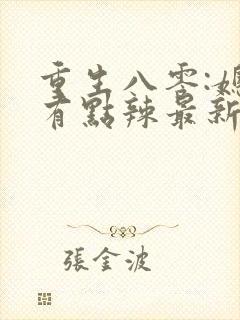 重生八零:媳
有點辣最新
張金波